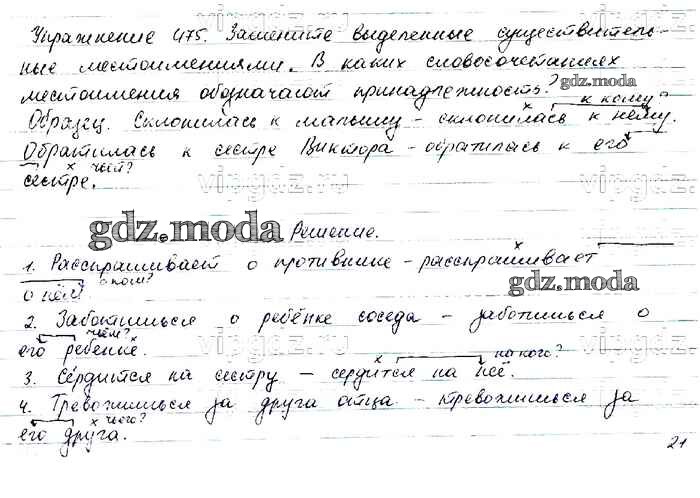 Упражнение 475. Замените выделенные существитель-
ные местоимениями. В каких словосочетаниях
местоимения обозначают принадлежность?
gdz.moda
к кому?
Образец. Склонилась к малышу – склонилась к нему.
Обратилась к сестре Виктора – обратилась к его
чьей?
сестре.
gdz.moda
Решение.
1. Расспрашивает о противнике – расспрашивает
о ком?
gdz.moda
о нём.
2. Заботишься о ребёнке соседа – заботишься о
чьём?
его ребёнке.
на кого?
3. Сердится на сестру – сердится на неё.
4. Тревожишься за друга отца – тревожишься за
чьего?
его друга.
21